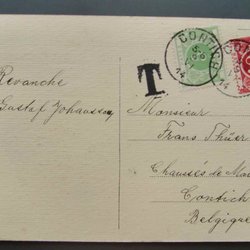 Revanche
Gustaf Johansson
T
CONTICH
Monsieur
Frans Thüer
Chaussée de Ma
Contich
Belgique